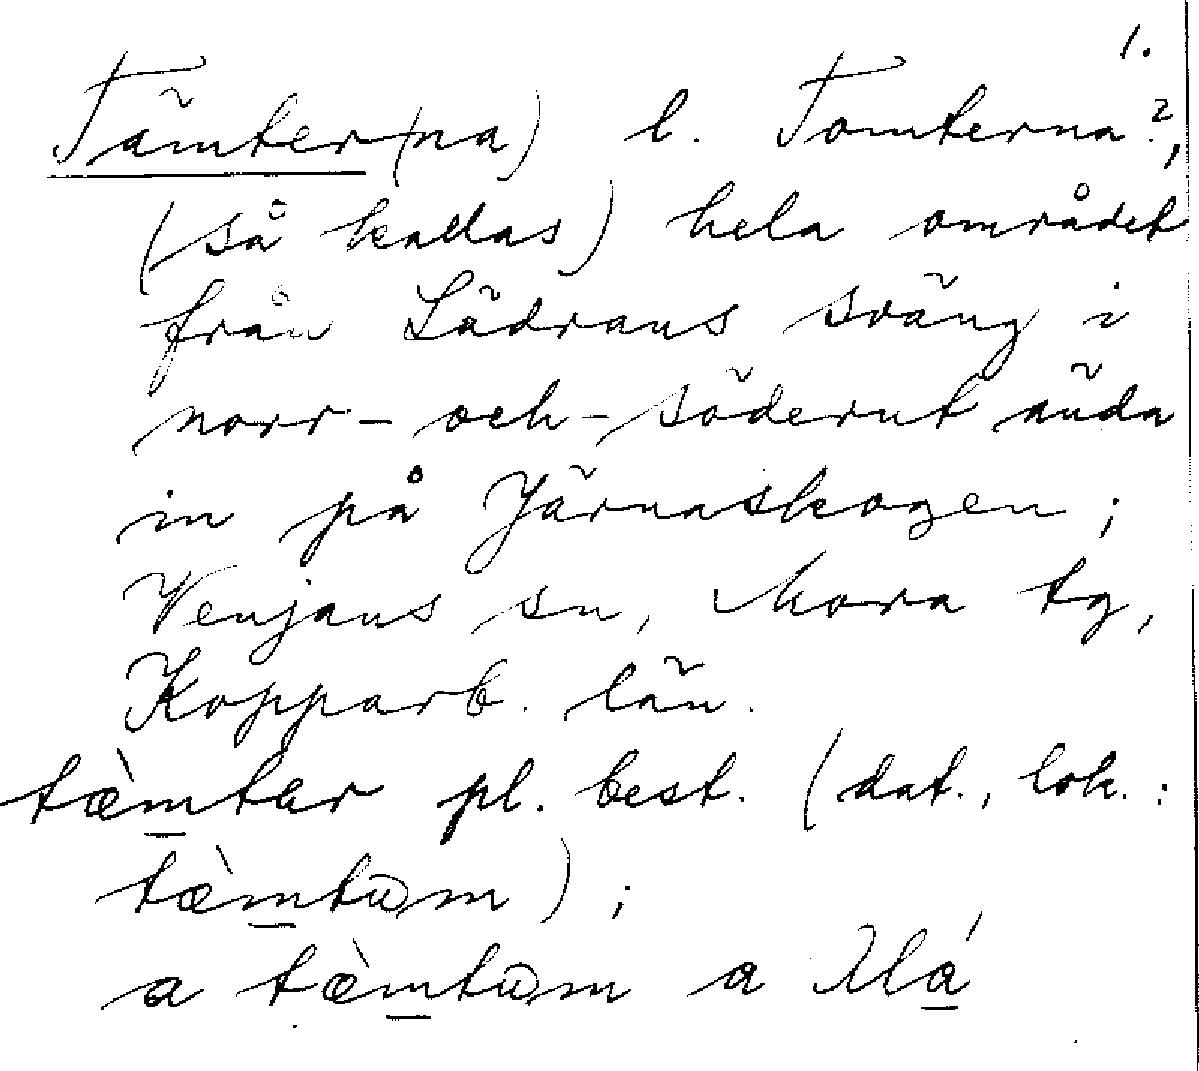 1.
Tämter(na) l. Tomterna?,
(så kallas) hela området
från Lädrans sväng i
norr- och- söderut ända
in på Järnaskogen;
Venjans sn, Mora tg,
Kopparb. län.
tæ̀mtər pl. best. (dat., lok.:
tæ̀mtum);
a tæ̀mtum a